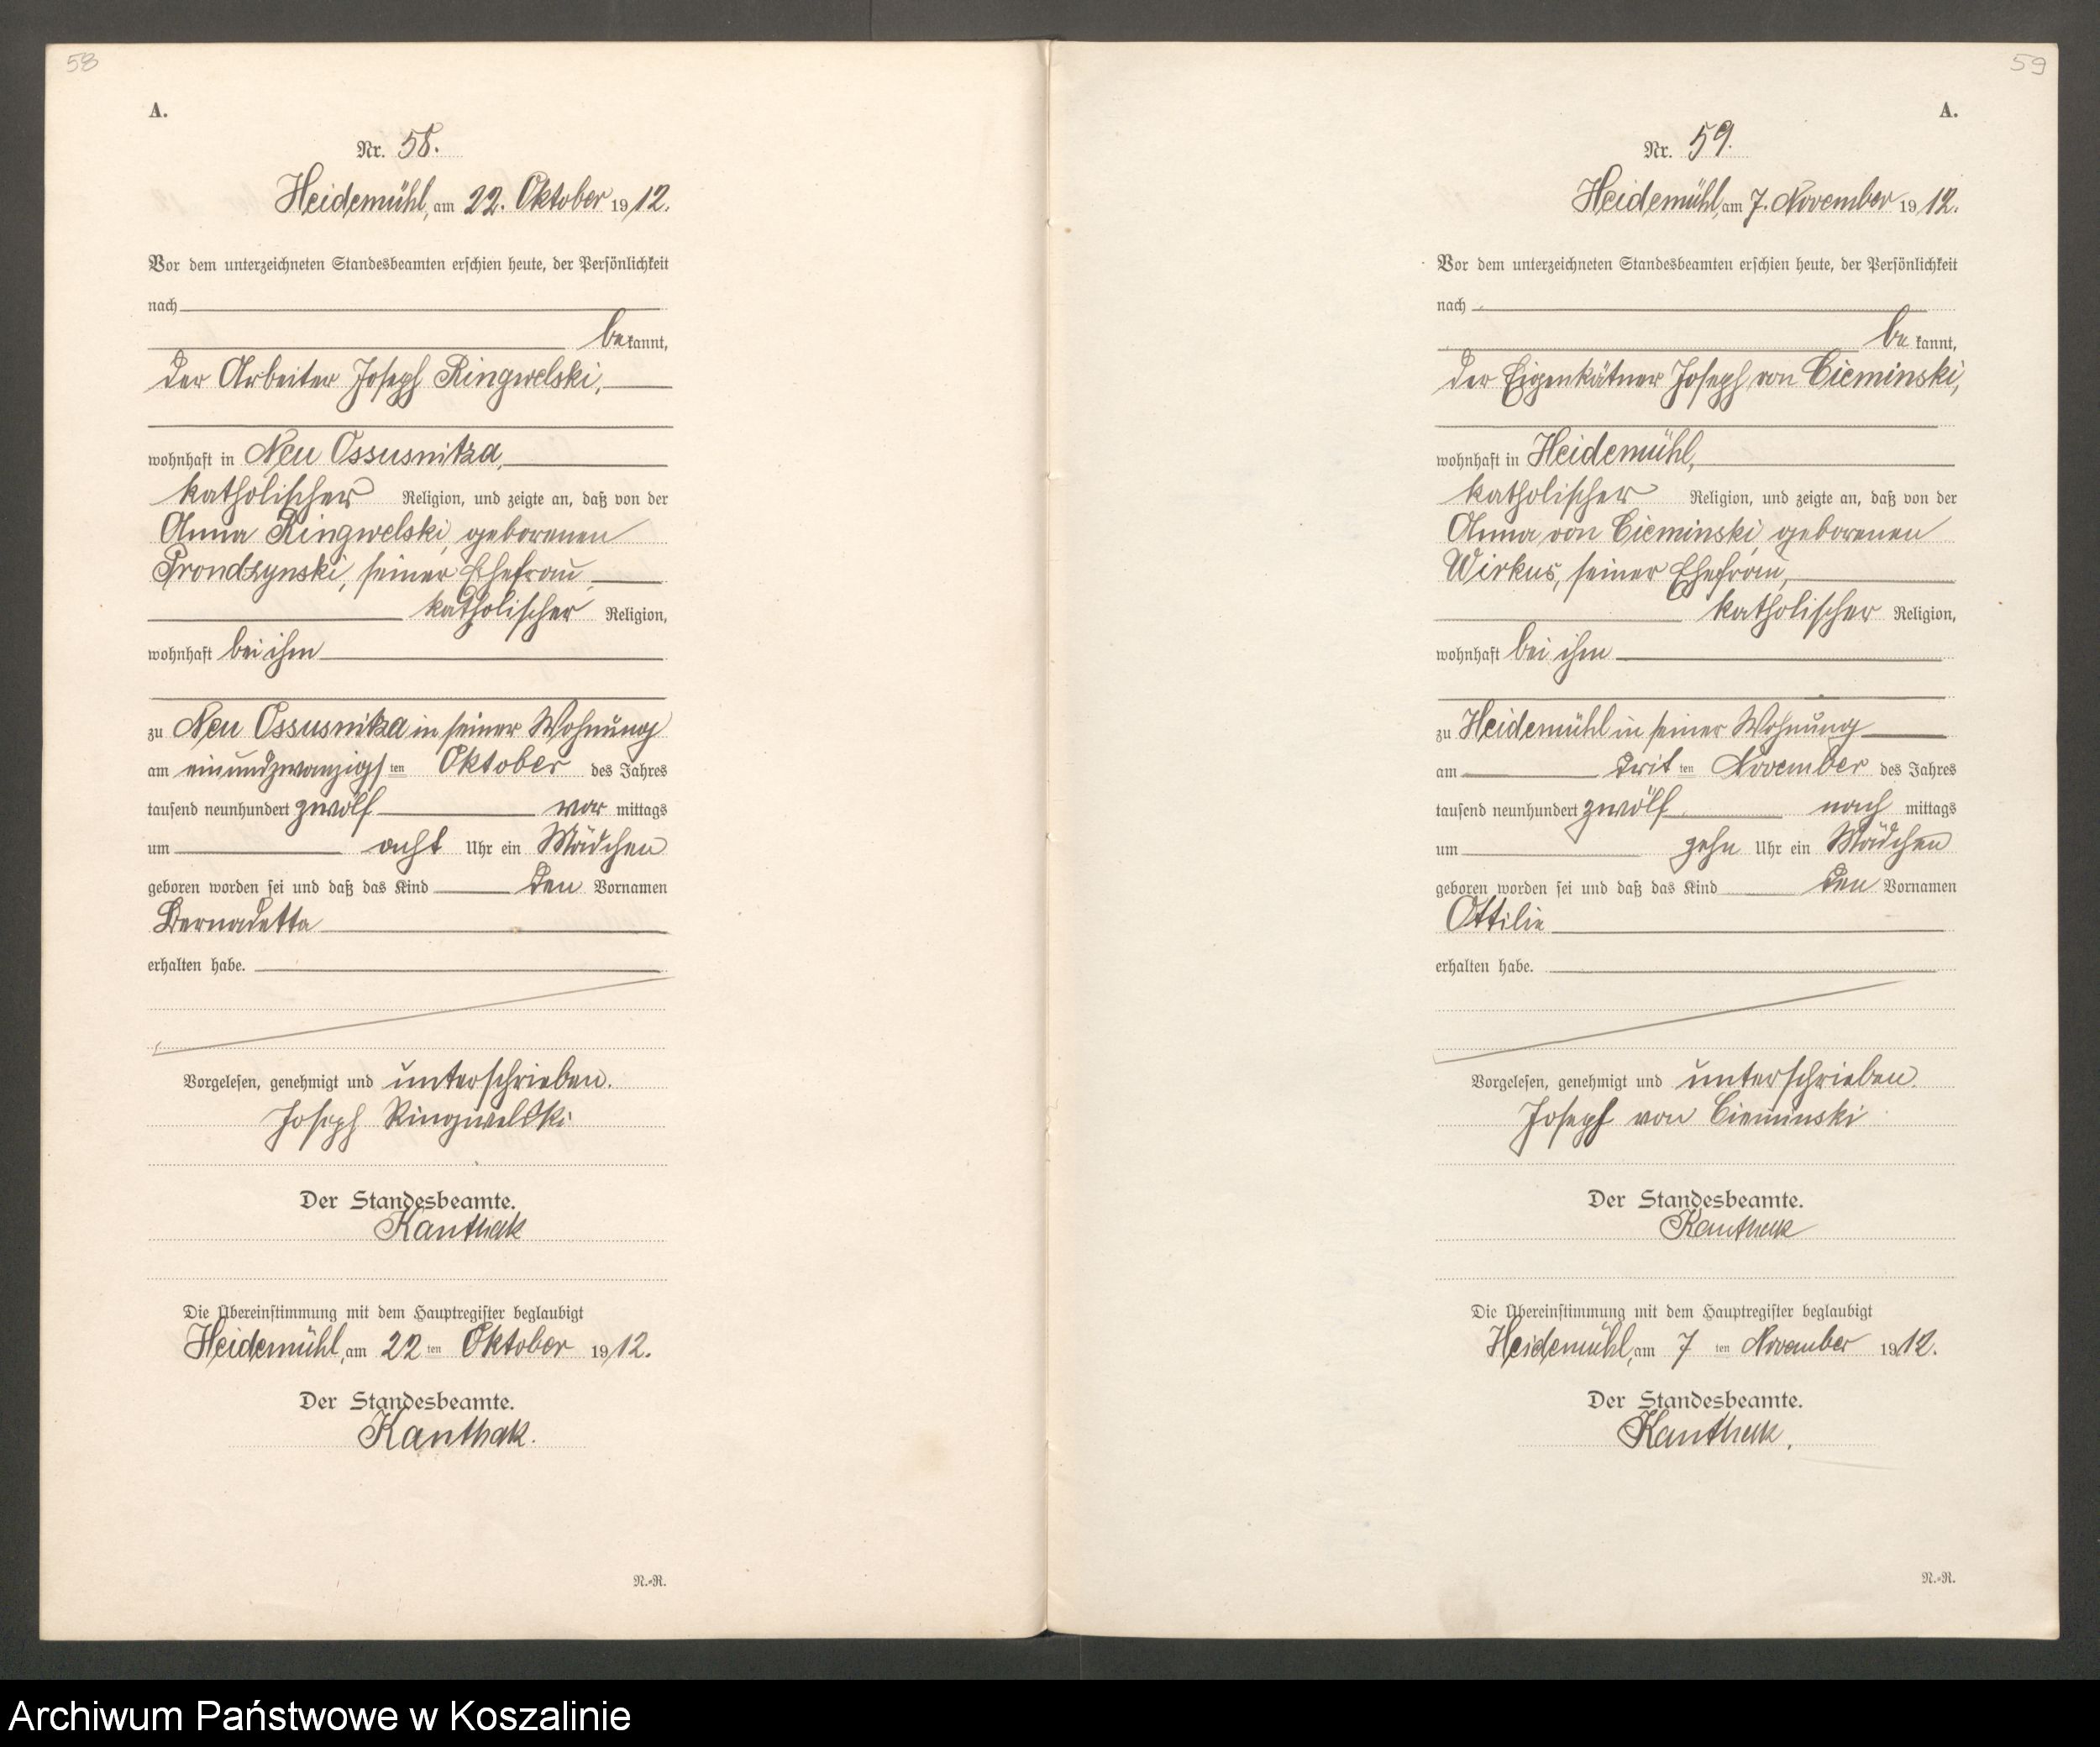 58
A.
Nr. 58.
Heidemühl, am 22. Oktober 1912.
Vor dem unterzeichneten Standesbeamten erschien heute, der Persönlichkeit
nach
bekannt,
der Arbeiter Joseph Ringwelski,
wohnhaft in Neu Ossusnitza,
katholischer Religion, und zeigte an, daß von der
Anna Ringwelski, geborenen
Prondzynski, seiner Ehefrau,
katholischer Religion,
wohnhaft bei ihm
zu Neu Ossusnitza in seiner Wohnung
am einundzwanzigsten Oktober des Jahres
tausend neunhundert zwölf vormittags
um acht Uhr ein Mädchen
geboren worden sei und daß das Kind den Vornamen
Bernadetta
erhalten habe.
Vorgelesen, genehmigt und unterschrieben.
Joseph Ringwelski
Der Standesbeamte.
Kanthak
Die Übereinstimmung mit dem Hauptregister beglaubigt
Heidemühl, am 22ten Oktober 1912.
Der Standesbeamte.
Kanthak.
N.-R.
59
A.
Nr. 59.
Heidemühl, am 7. November 1912.
Vor dem unterzeichneten Standesbeamten erschien heute, der Persönlichkeit
nach
bekannt,
der Eigenkätner Joseph von Cieminski,
wohnhaft in Heidemühl,
katholischer Religion, und zeigte an, daß von der
Anna von Cieminski, geborenen
Wirkus, seiner Ehefrau,
katholischer Religion,
wohnhaft bei ihm
zu Heidemühl in seiner Wohnung
am dritten November des Jahres
tausend neunhundert zwölf nachmittags
um zehn Uhr ein Mädchen
geboren worden sei und daß das Kind den Vornamen
Ottilie
erhalten habe.
Vorgelesen, genehmigt und unterschrieben.
Joseph von Cieminski
Der Standesbeamte.
Kanthak
Die Übereinstimmung mit dem Hauptregister beglaubigt
Heidemühl, am 7ten November 1912.
Der Standesbeamte.
Kanthak.
N.-R.
Archiwum Państwowe w Koszalinie